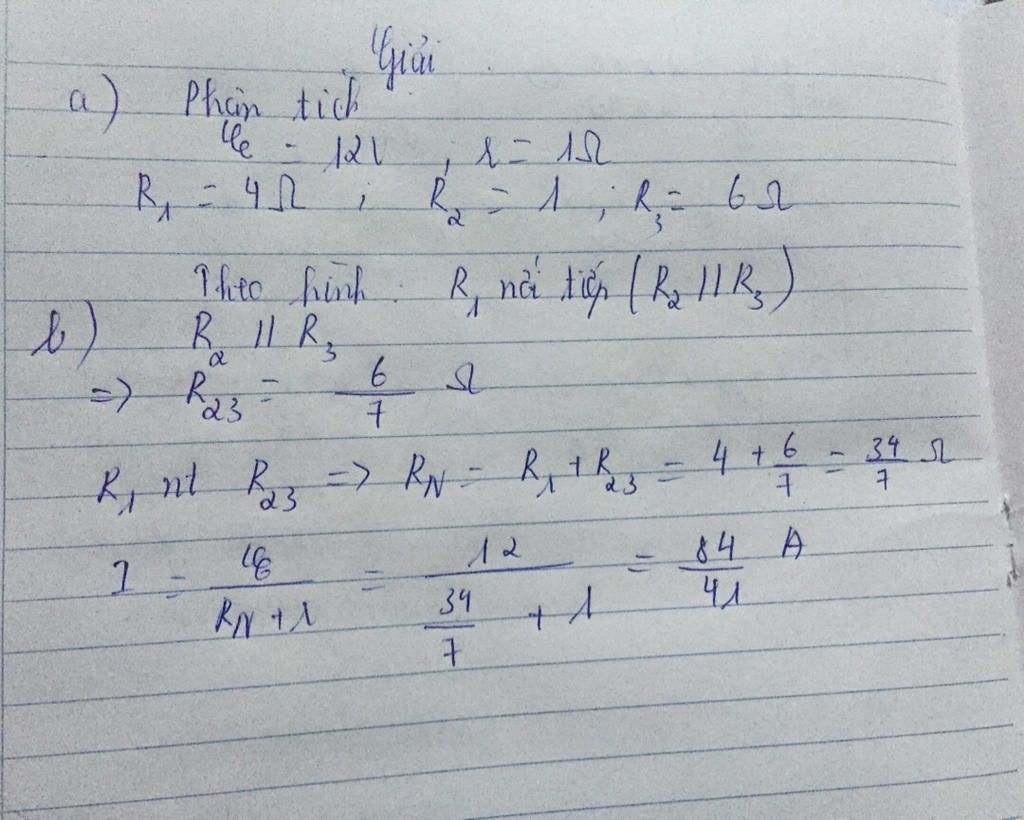 Giải
a) Phân tích
ℰ = 12V ; r = 1Ω
R₁ = 4Ω ; R₂ = 1 ; R₃ = 6Ω
Theo hình : R₁ nối tiếp (R₂ // R₃)
b) R₂ // R₃
=> R₂₃ = 6/7 Ω
R₁ nt R₂₃ => R_N = R₁ + R₂₃ = 4 + 6/7 = 34/7 Ω
I = ℰ/(R_N + r) = 12/(34/7 + 1) = 84/41 A